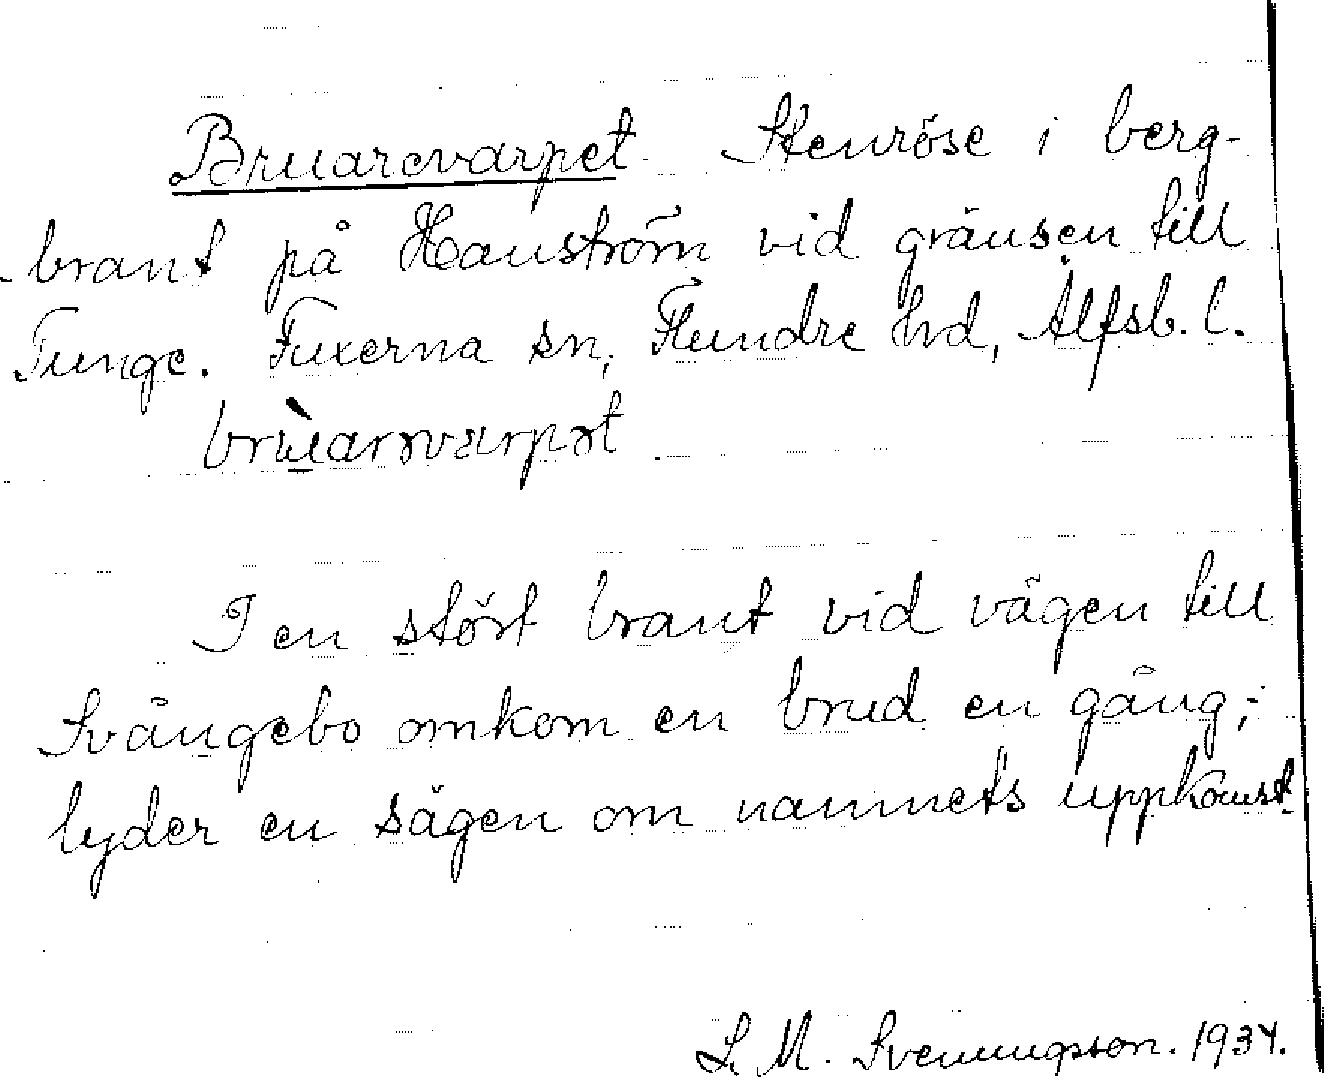 Bruarevarpet. Stenröse i berg-
brant på Hanström vid gränsen till
Tunge. Fuxerna sn, Flundre hd, Älfsb. l.
brùarəvarpət
I en stört brant vid vägen till
Svängebo omkom en brud en gång,-
lyder en sägen om namnets uppkomst.
S. M. Svenungsson. 1934.